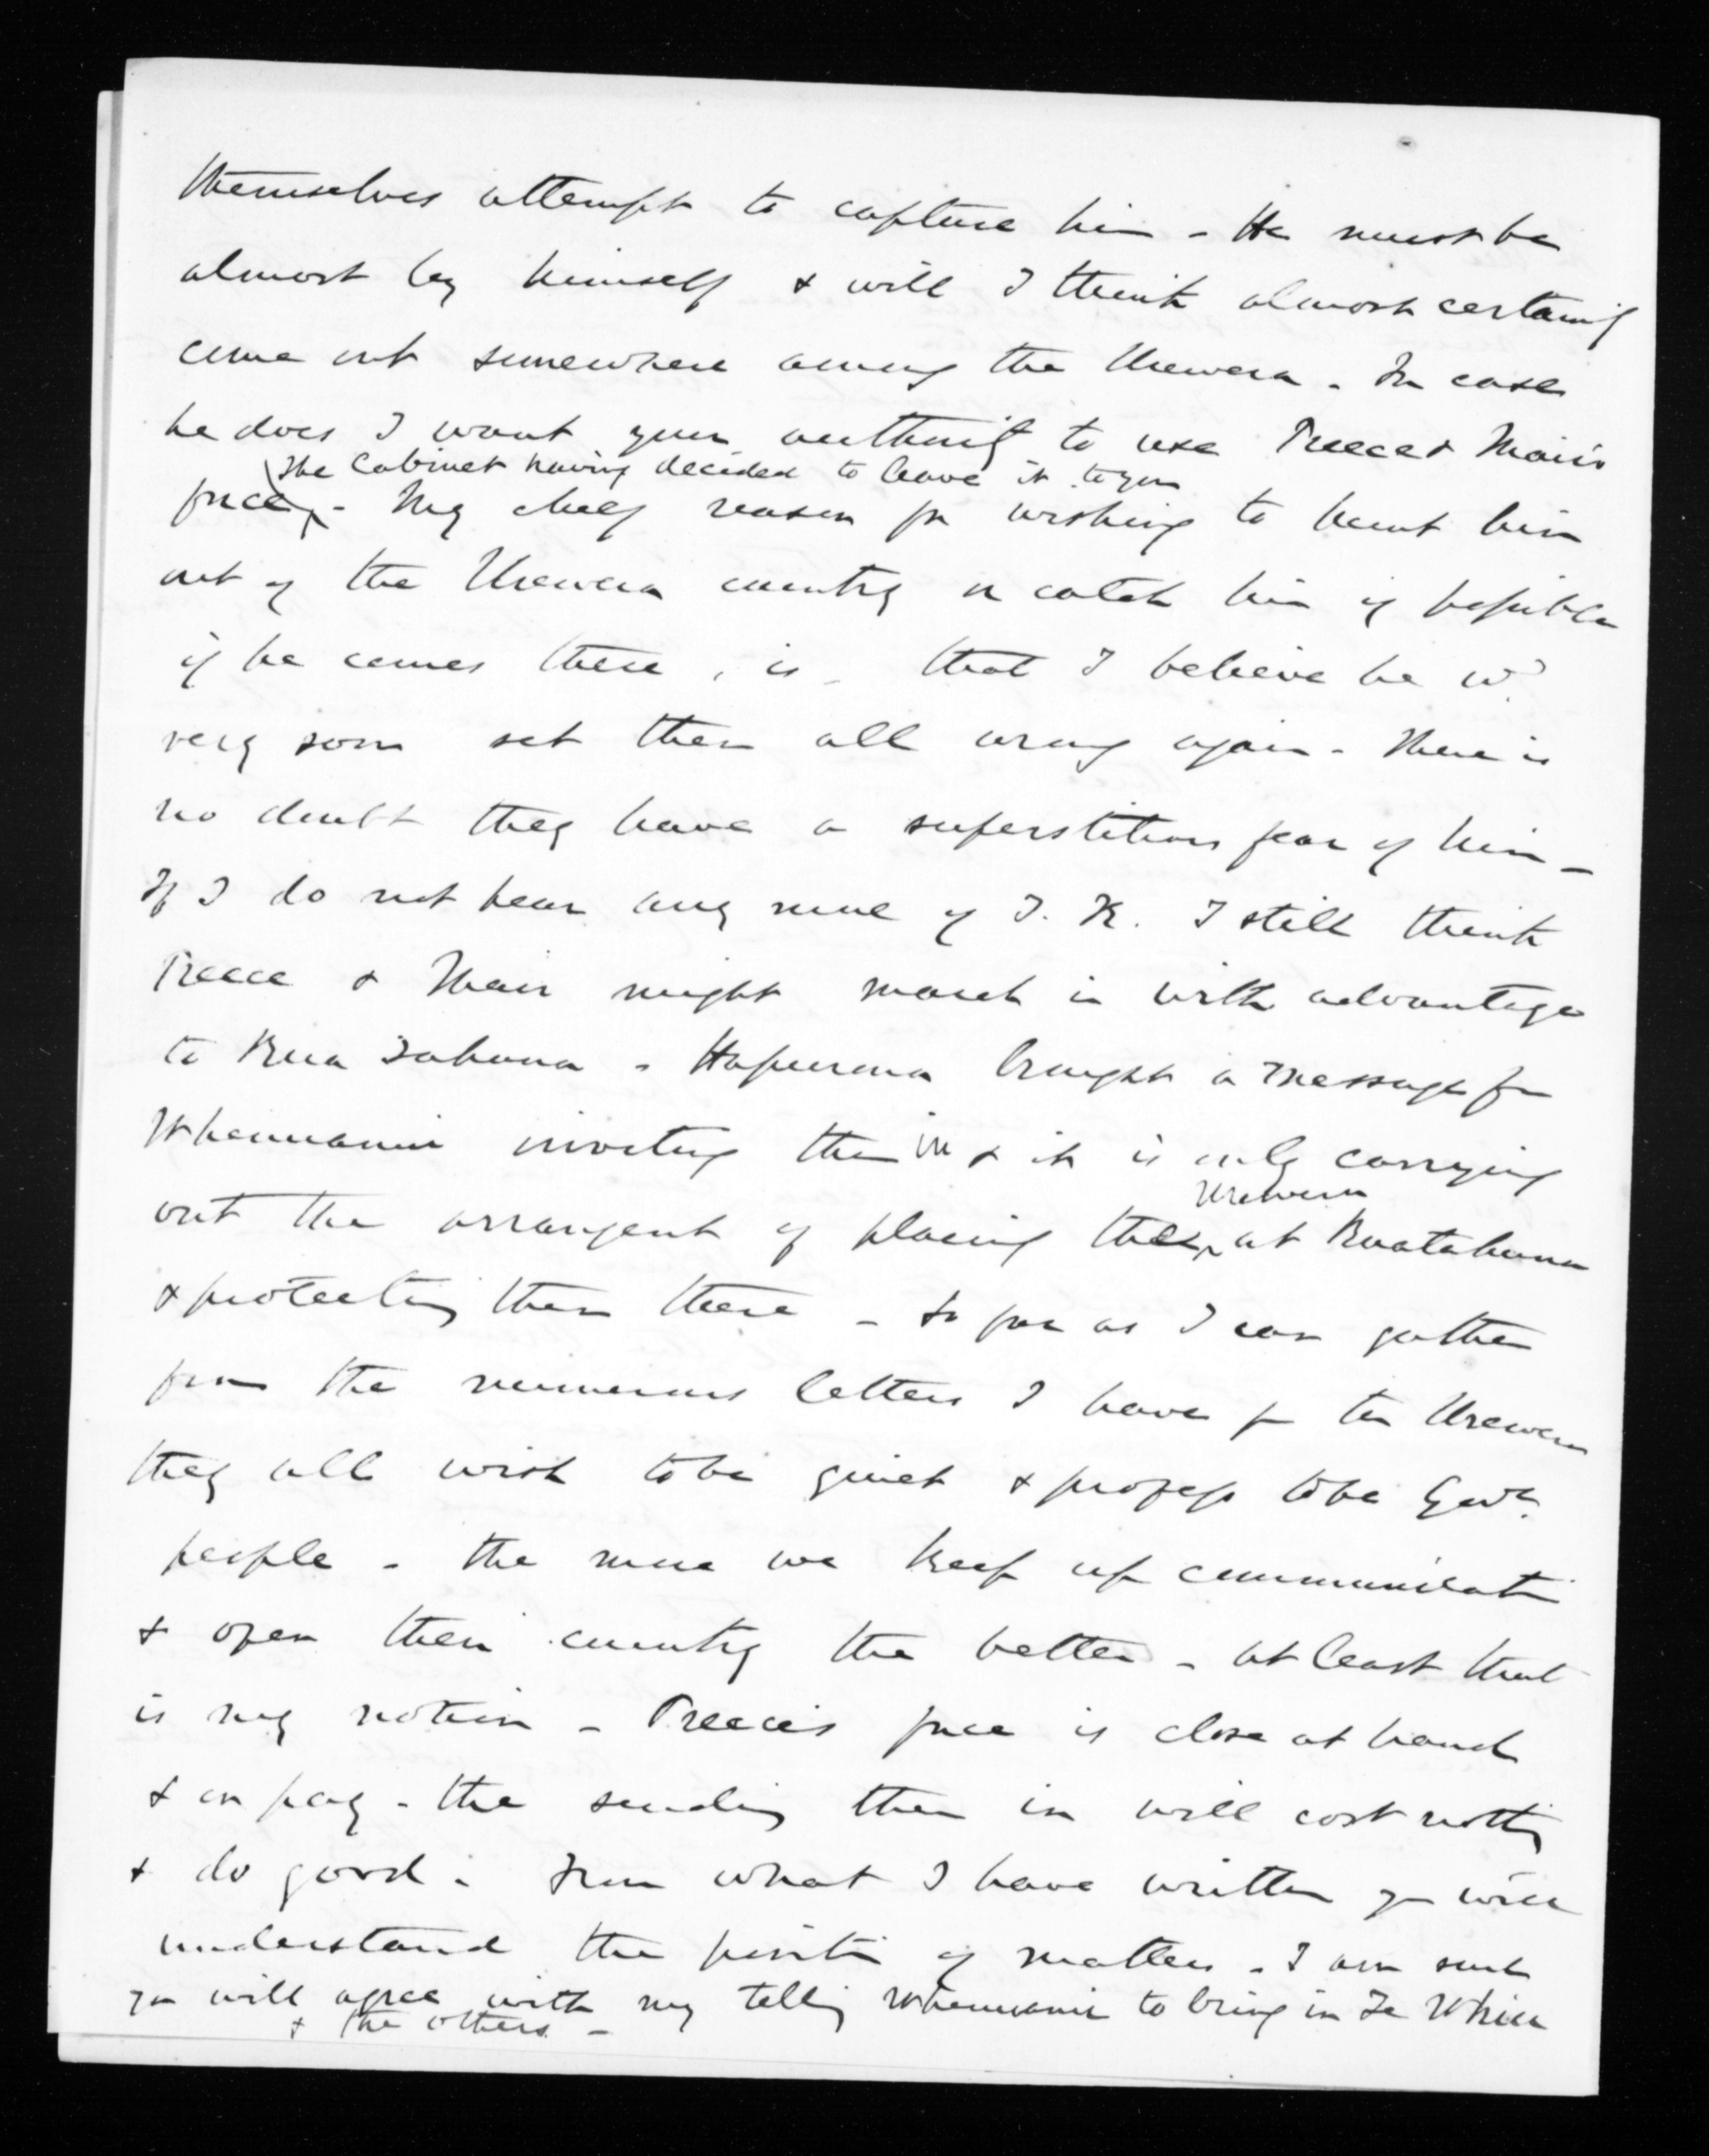 themselves attempt to capture him - He must be
almost by himself & will I think almost certainly
come out somewhere among the Urewera - In case
he does I want your authority to use Preece & Mair's
The Cabinet having decided to leave it to you
force - My chief reason for wishing to hunt him
out of the Urewera country or catch him if possible
if he comes there, is - that I believe he wd.
very soon set them all wrong again - There is
no doubt they have a superstitious fear of him -
If I do not hear any more of T. K. I still think
Preece & Mair might march in with advantage
to Rua Tahuna - Hapurona brought a message fr
Whenuanui inviting them in & it is only carrying
Urewera
out the arrangent of placing these at Ruatahuna
& protecting them there - So far as I can gather
from the numerous letters I have fr the Urewera
they all wish to be quiet & profess to be Govt.
people - the more we keep up communicati
& open their country the better - at least that
is my notion - Preece's force is close at hand
& on pay - the sending them in will cost nothg
& do good - From what I have written you will
understand the positi of matters - I am sure
you will agree with my tellig Whenuanui to bring in Te Whiu
& the others -